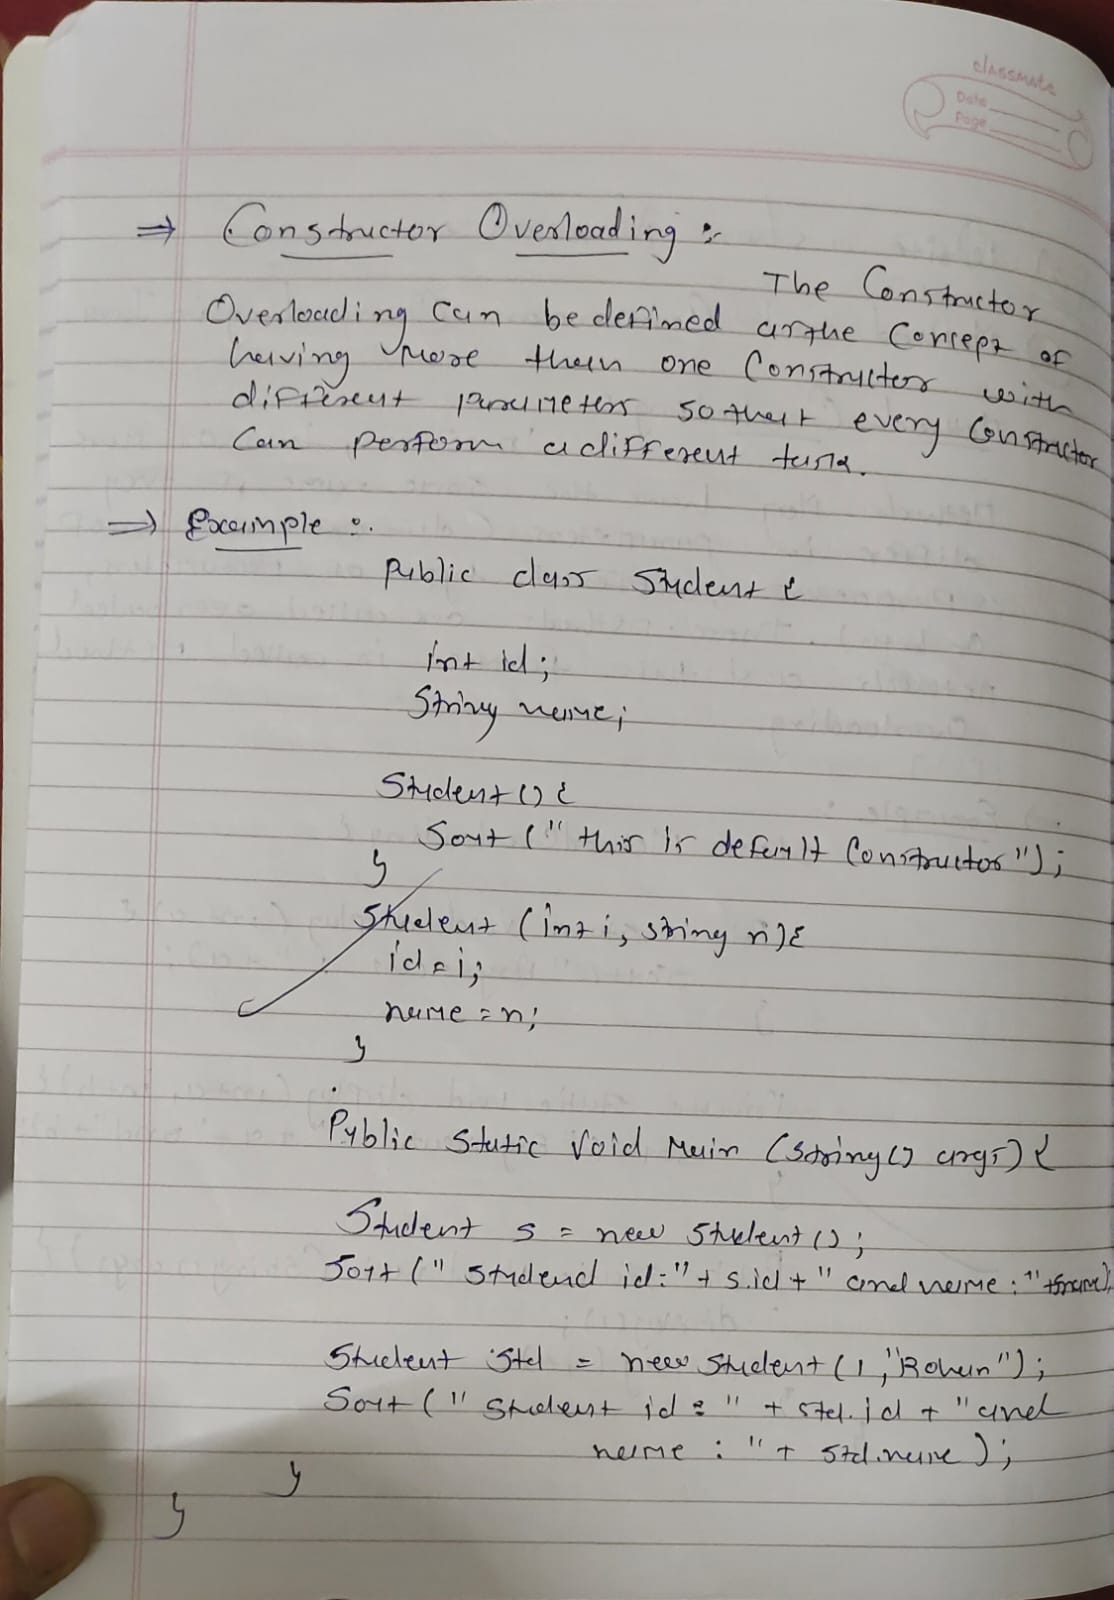 classmate
Date
Page
⇒ Constructor Overloading :-
The Constructor
Overloading Can be defined as the Concept of
having more than one Constructor with
different parameters so that every Constructor
Can perform a different task.
⇒ Example :.
Public class Student {
int id;
String name;
Student () {
Sout (" this is default Constructor");
}
Student (int i, string n) {
id = i;
name = n;
}
Public Static Void Main (String() args) {
Student s = new Student ();
Sout (" Studend id:" + s.id + " and name : " +s.name);
Student Std = new Student (1, "Rohan");
Sout (" Student id : " + std.id + "and
name : " + std.name );
}
}